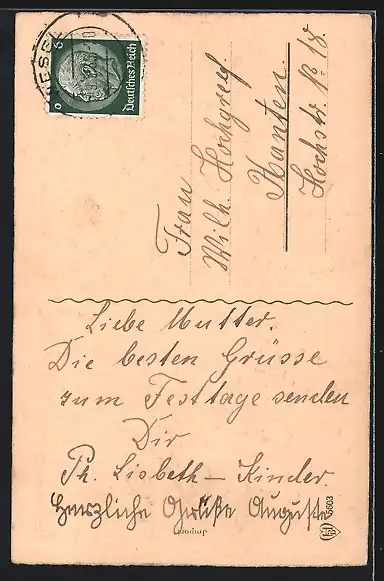 Frau
Wilh. Hochgreef.
Xanten.
Hochstr. No 18.
Deutsches Reich
6
WESEL
Liebe Mutter.
Die besten Grüsse
zum Festtage senden
Dir
Ph. Lisbeth – Kinder.
Herzliche Grüße Auguste
6603